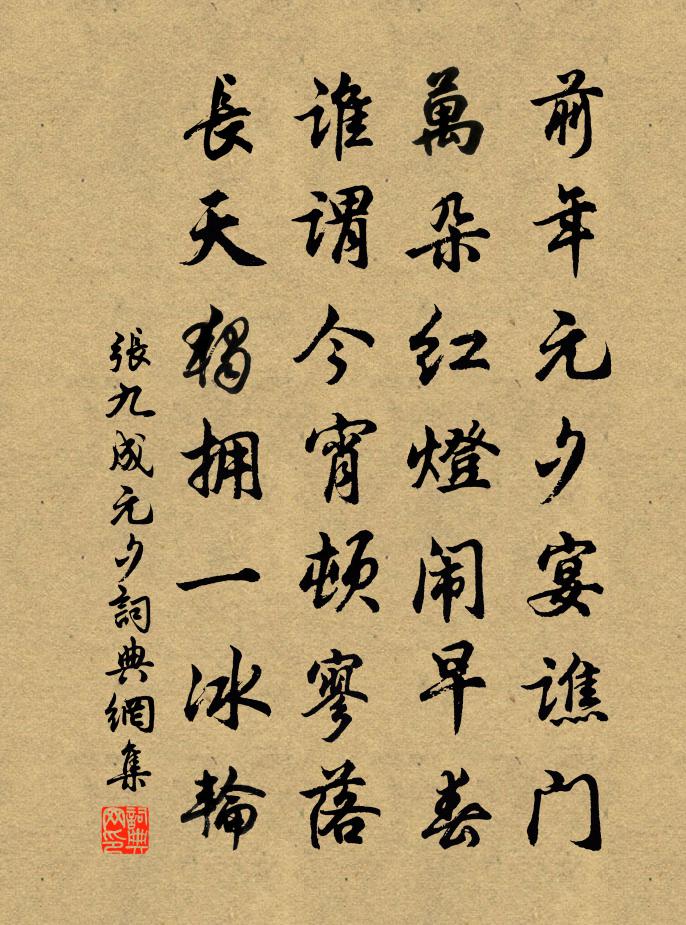 前年元夕宴譙门
萬朵红燈闹早春
誰謂今宵頓寥落
長天獨拥一冰輪
張九成元夕詞典網集
詞典网印